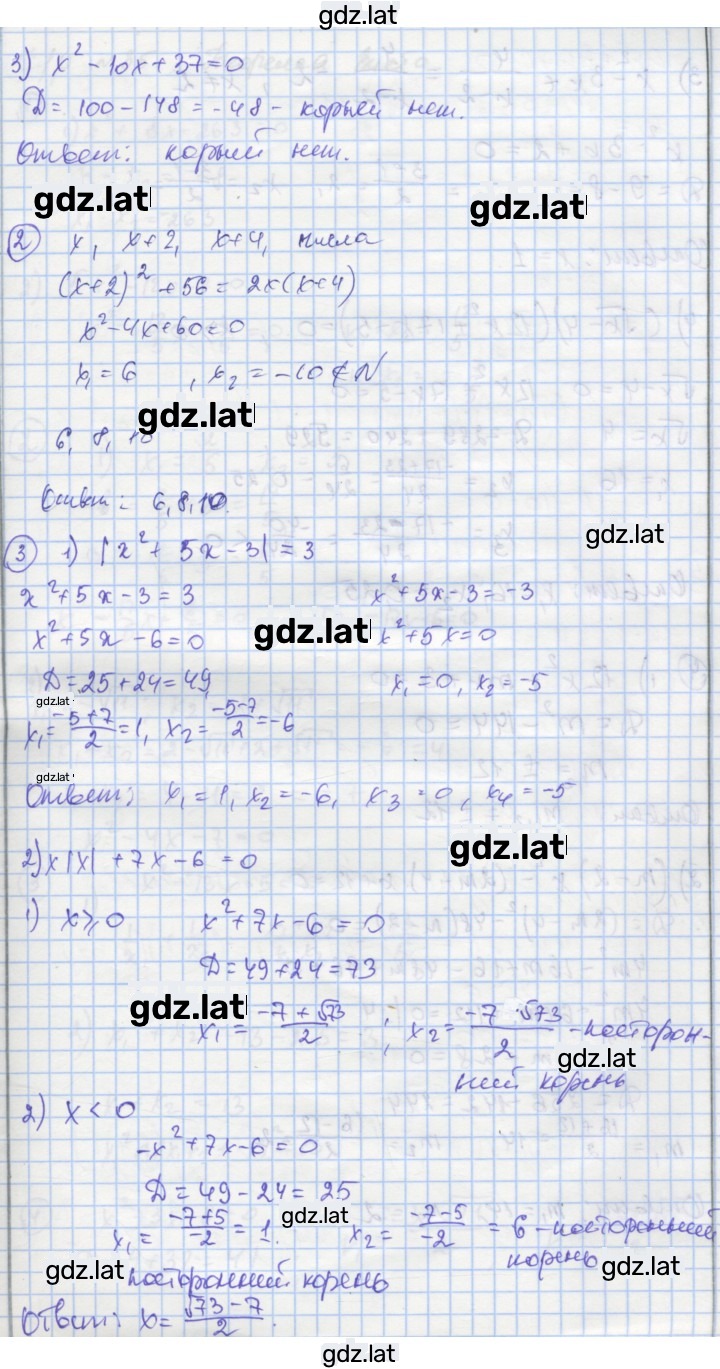 gdz.lat
3) x² - 10x + 37 = 0
D = 100 - 148 = -48 - корней нет.
Ответ: корней нет.
gdz.lat gdz.lat
2 x, x+2, x+4, числа
(x+2)² + 56 = 2x(x+4)
x² - 4x + 60 = 0
x₁ = 6 , x₂ = -10 ∉ N
gdz.lat
6, 8, 10
Ответ: 6, 8, 10.
gdz.lat
3 1) |x² + 5x - 3| = 3
x² + 5x - 3 = 3 x² + 5x - 3 = -3
x² + 5x - 6 = 0 gdz.lat x² + 5x = 0
D = 25 + 24 = 49, x₁ = 0, x₂ = -5
gdz.lat
x₁ = (-5+7)/2 = 1, x₂ = (-5-7)/2 = -6
gdz.lat
Ответ: x₁ = 1, x₂ = -6, x₃ = 0, x₄ = -5
gdz.lat
2) x|x| + 7x - 6 = 0
1) x ≥ 0 x² + 7x - 6 = 0
D = 49 + 24 = 73
gdz.lat
x₁ = (-7 + √73)/2 ; x₂ = (-7 √73)/2 - посторон-
gdz.lat
ний корень
2) x < 0
-x² + 7x - 6 = 0
D = 49 - 24 = 25
x₁ = (-7+5)/-2 = 1. gdz.lat x₂ = (-7-5)/-2 = 6 - посторонний
корень
gdz.lat посторонний корень gdz.lat
Ответ: x = (√73 - 7)/2.
gdz.lat